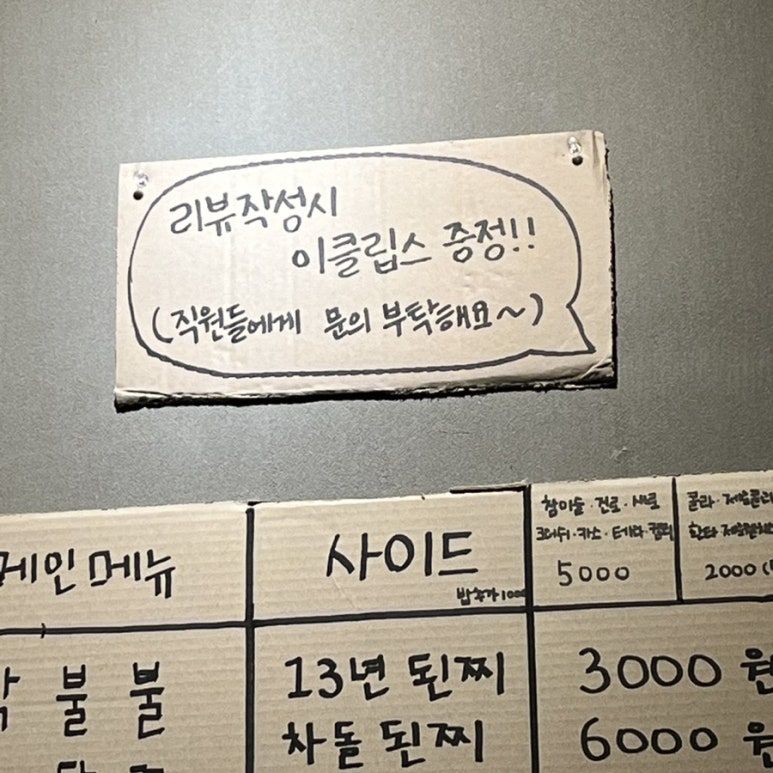 리뷰작성시
이클립스 증정!!
(직원들에게 문의 부탁해요~)
메인메뉴
사이드
밥추가 1000
참이슬·진로·새로
카스·테라·켈리
5000
콜라·제로콜라
2000
불 불
13년 된찌
3000 원
차돌 된찌
6000 원